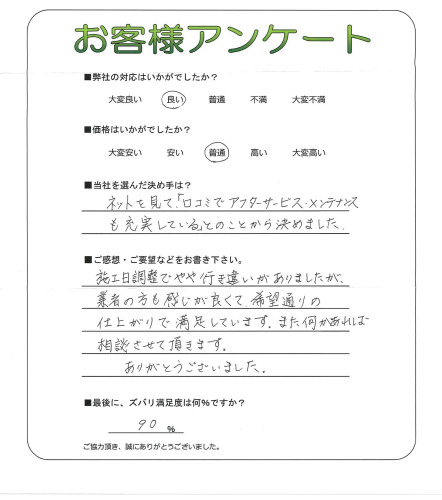 お客様アンケート
■弊社の対応はいかがでしたか？
大変良い 良い 普通 不満 大変不満
■価格はいかがでしたか？
大変安い 安い 普通 高い 大変高い
■当社を選んだ決め手は？
ネットを見て、「口コミでアフターサービス・メンテナンス
も充実している」とのことから決めました。
■ご感想・ご要望などをお書き下さい。
施工日調整でやや行き違いがありましたが、
業者の方も感じが良くて、希望通りの
仕上がりで満足しています。また何かあれば
相談させて頂きます。
ありがとうございました。
■最後に、ズバリ満足度は何%ですか？
90 %
ご協力頂き、誠にありがとうございました。